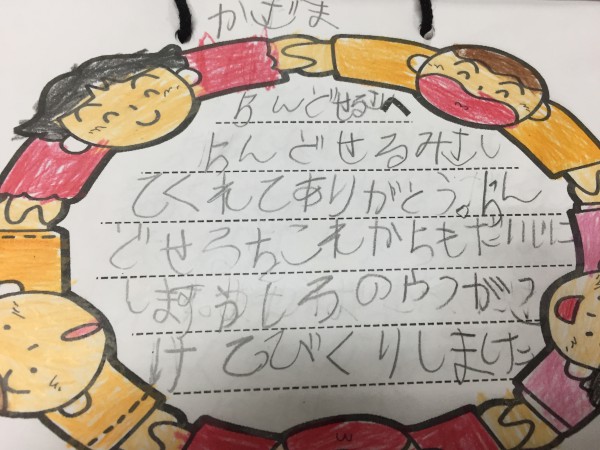 かずま
らんどせるさんへ
らんどせるみさし
てくれてありがとう。らん
どせろちこれからもだいじに
します。うしろのやつがつ
けてびくりしました